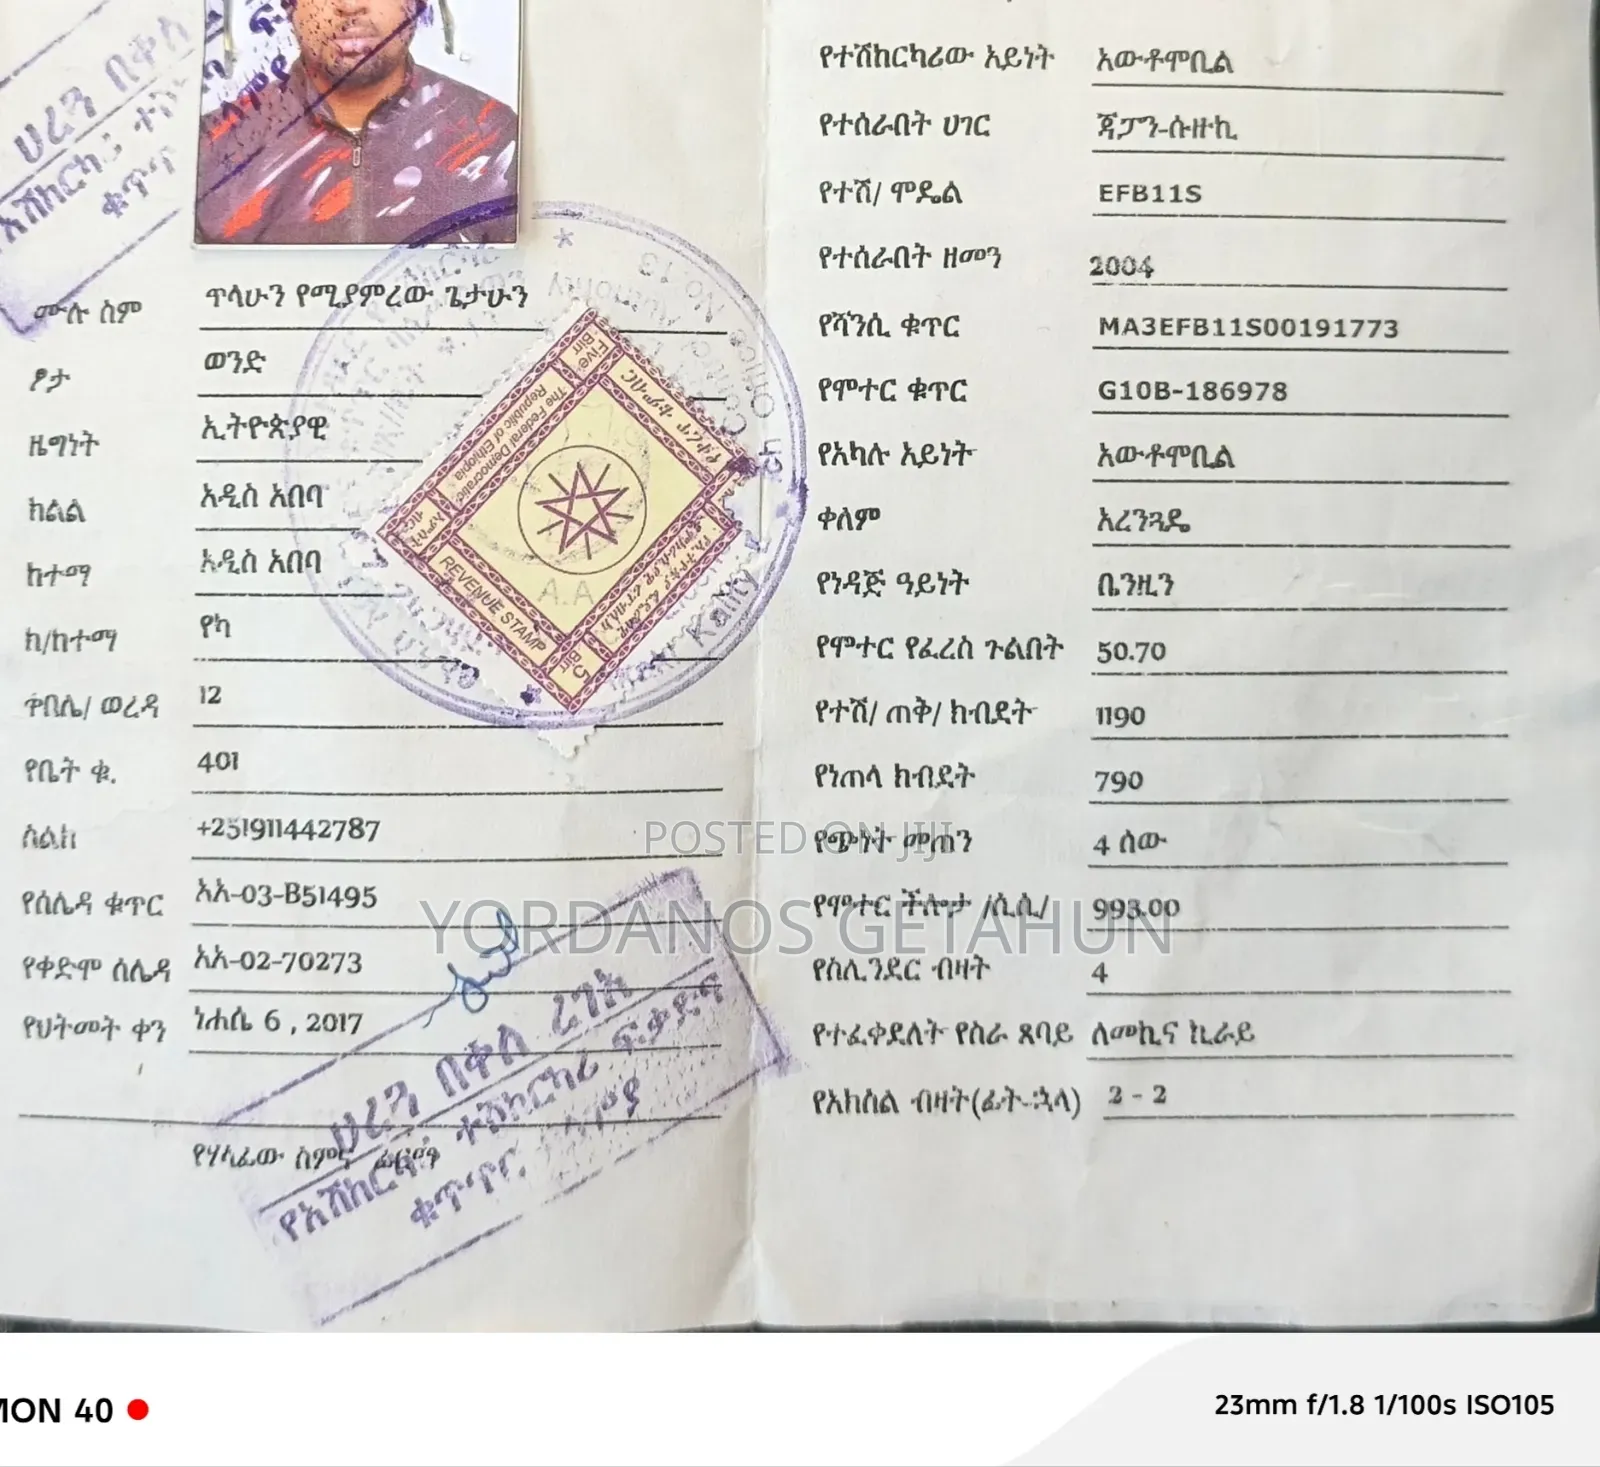 ሙሉ ስም ጥላሁን የሚያምረው ጌታሁን
ፆታ ወንድ
ዜግነት ኢትዮጵያዊ
ክልል አዲስ አበባ
ከተማ አዲስ አበባ
ክ/ከተማ የካ
ቀበሌ/ ወረዳ 12
የቤት ቁ. 401
ስልክ +251911442787
የሰሌዳ ቁጥር አአ-03-B51495
የቀድሞ ሰሌዳ አአ-02-70273
የህትመት ቀን ነሐሴ 6 , 2017
የሃላፊው ስምና ፊርማ
የተሽከርካሪው አይነት አውቶሞቢል
የተሰራበት ሀገር ጃፓን-ሱዙኪ
የተሽ/ ሞዴል EFB11S
የተሰራበት ዘመን 2004
የሻንሲ ቁጥር MA3EFB11S00191773
የሞተር ቁጥር G10B-186978
የአካሉ አይነት አውቶሞቢል
ቀለም አረንጓዴ
የነዳጅ ዓይነት ቤንዚን
የሞተር የፈረስ ጉልበት 50.70
የተሽ/ ጠቅ/ ክብደት 1190
የነጠላ ክብደት 790
የጭነት መጠን 4 ሰው
የሞተር ችሎታ /ሲሲ/ 993.00
የሲሊንደር ብዛት 4
የተፈቀደለት የስራ ጸባይ ለመኪና ኪራይ
የአክሰል ብዛት(ፊት-ኋላ) 2 - 2
Five Birr
The Federal Democratic
Republic of Ethiopia
REVENUE STAMP
5 Birr
A.A
Kality
ሀረጓ በቀለ ረገአ
የአሽከርካሪ ተሽከርካሪ ፍቃድና
ቁጥጥር
POSTED ON JIJI
YORDANOS GETAHUN
MON 40
23mm f/1.8 1/100s ISO105